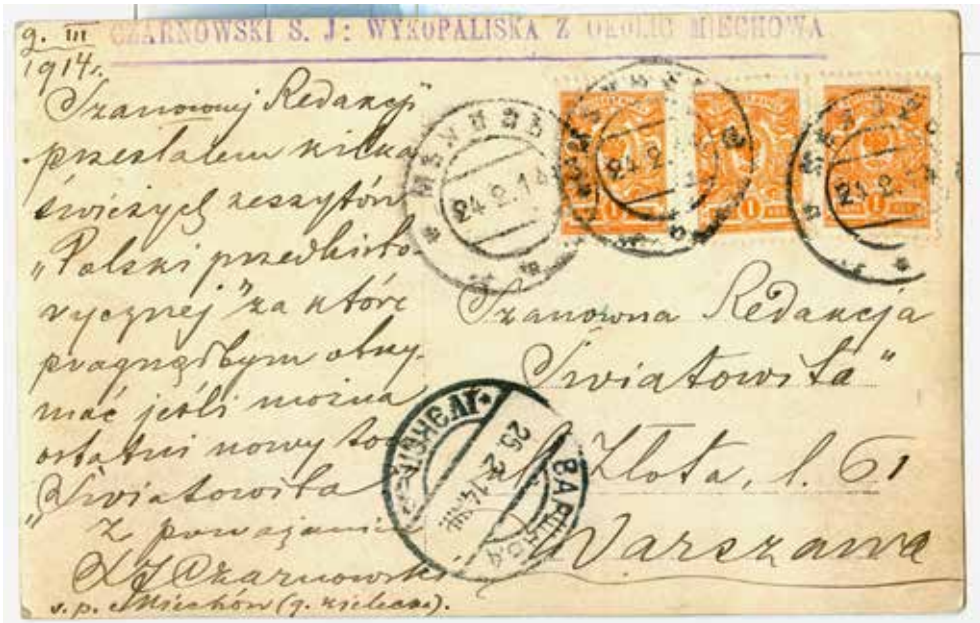 CZARNOWSKI S. J: WYKOPALISKA Z OKOLIC MIECHOWA
9. III
1914 r.
Szanownej Redakcji
przesłałem kilka
świeżych zeszytów
„Polski przedhisto-
rycznej" za które
pragnąłbym otrzy-
mać jeśli można
ostatni nowy tom
„Światowita
Z poważaniem
S J Czarnowski
s. p. Miechów (g. kielecka).
24.2.14
24.2.
24.2.
1
1
1
Szanowna Redakcja
„Światowita"
ul. Złota, l. 61
Warszawa
ВАРШАВА
25.2.14